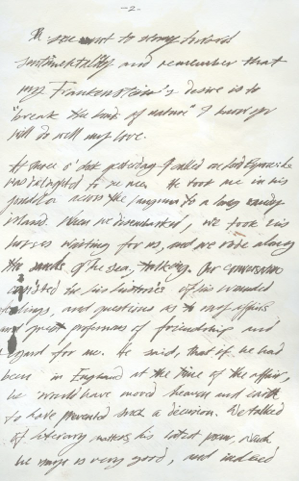 -2-
to and
sentimentality and remember that
my Frankenstein's desire is to
"break the of nature" I know you
will do well my love.
At three o'clock yesterday I called on Lord Byron he
was delighted to see me. He took me in his
gondola across the laguna to a long sandy
island. When we disembarked, we his
horses waiting for us, and we rode along
the sands of the sea, talking. Our conversation
consisted in histories of his wounded
feelings, and questions as to my affairs
and great professions of friendship and
regard for me. He said, that if he had
been in England at the time of the affair,
he would have moved heaven and earth
to have prevented such a decision. We talked
of literary matters his latest poem, which
he says is very good, and indeed